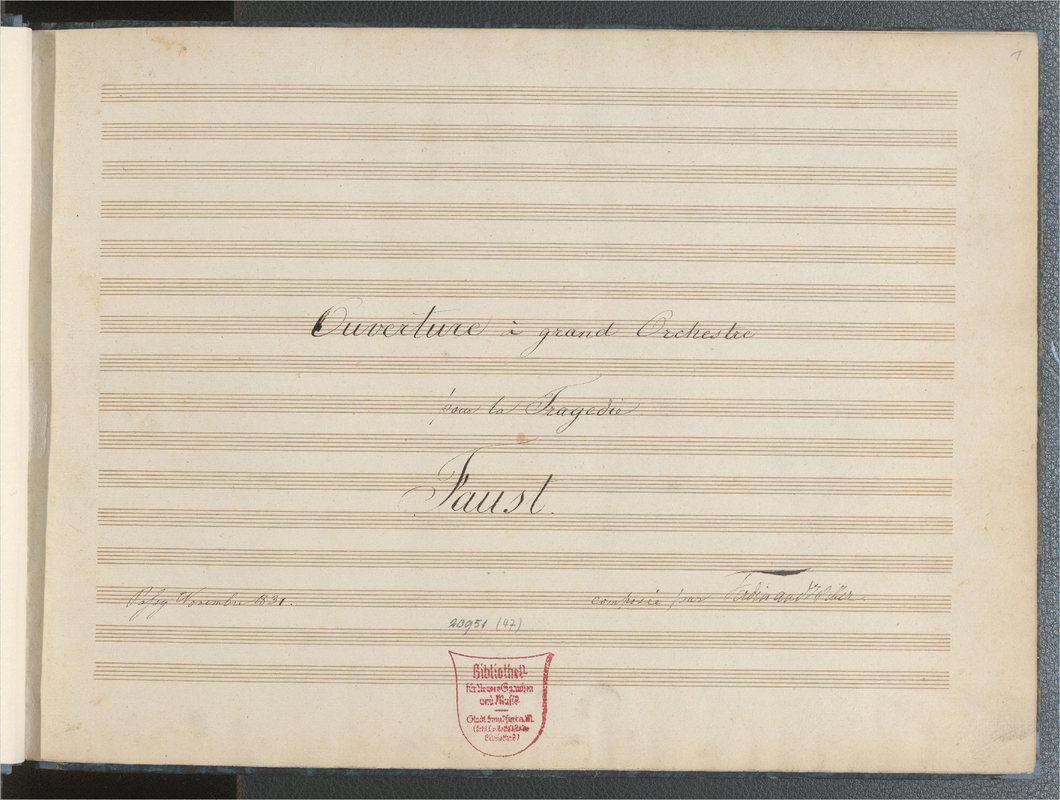 1
Ouverture à grand Orchestre
pour la Tragedie
Faust.
Novembre 1831.
composée par Ferdinand Hiller.
20951 (47)
Bibliothek
für Neuere Sprachen
und Musik
Stadt Frankfurt a.M.
Bibliothek)